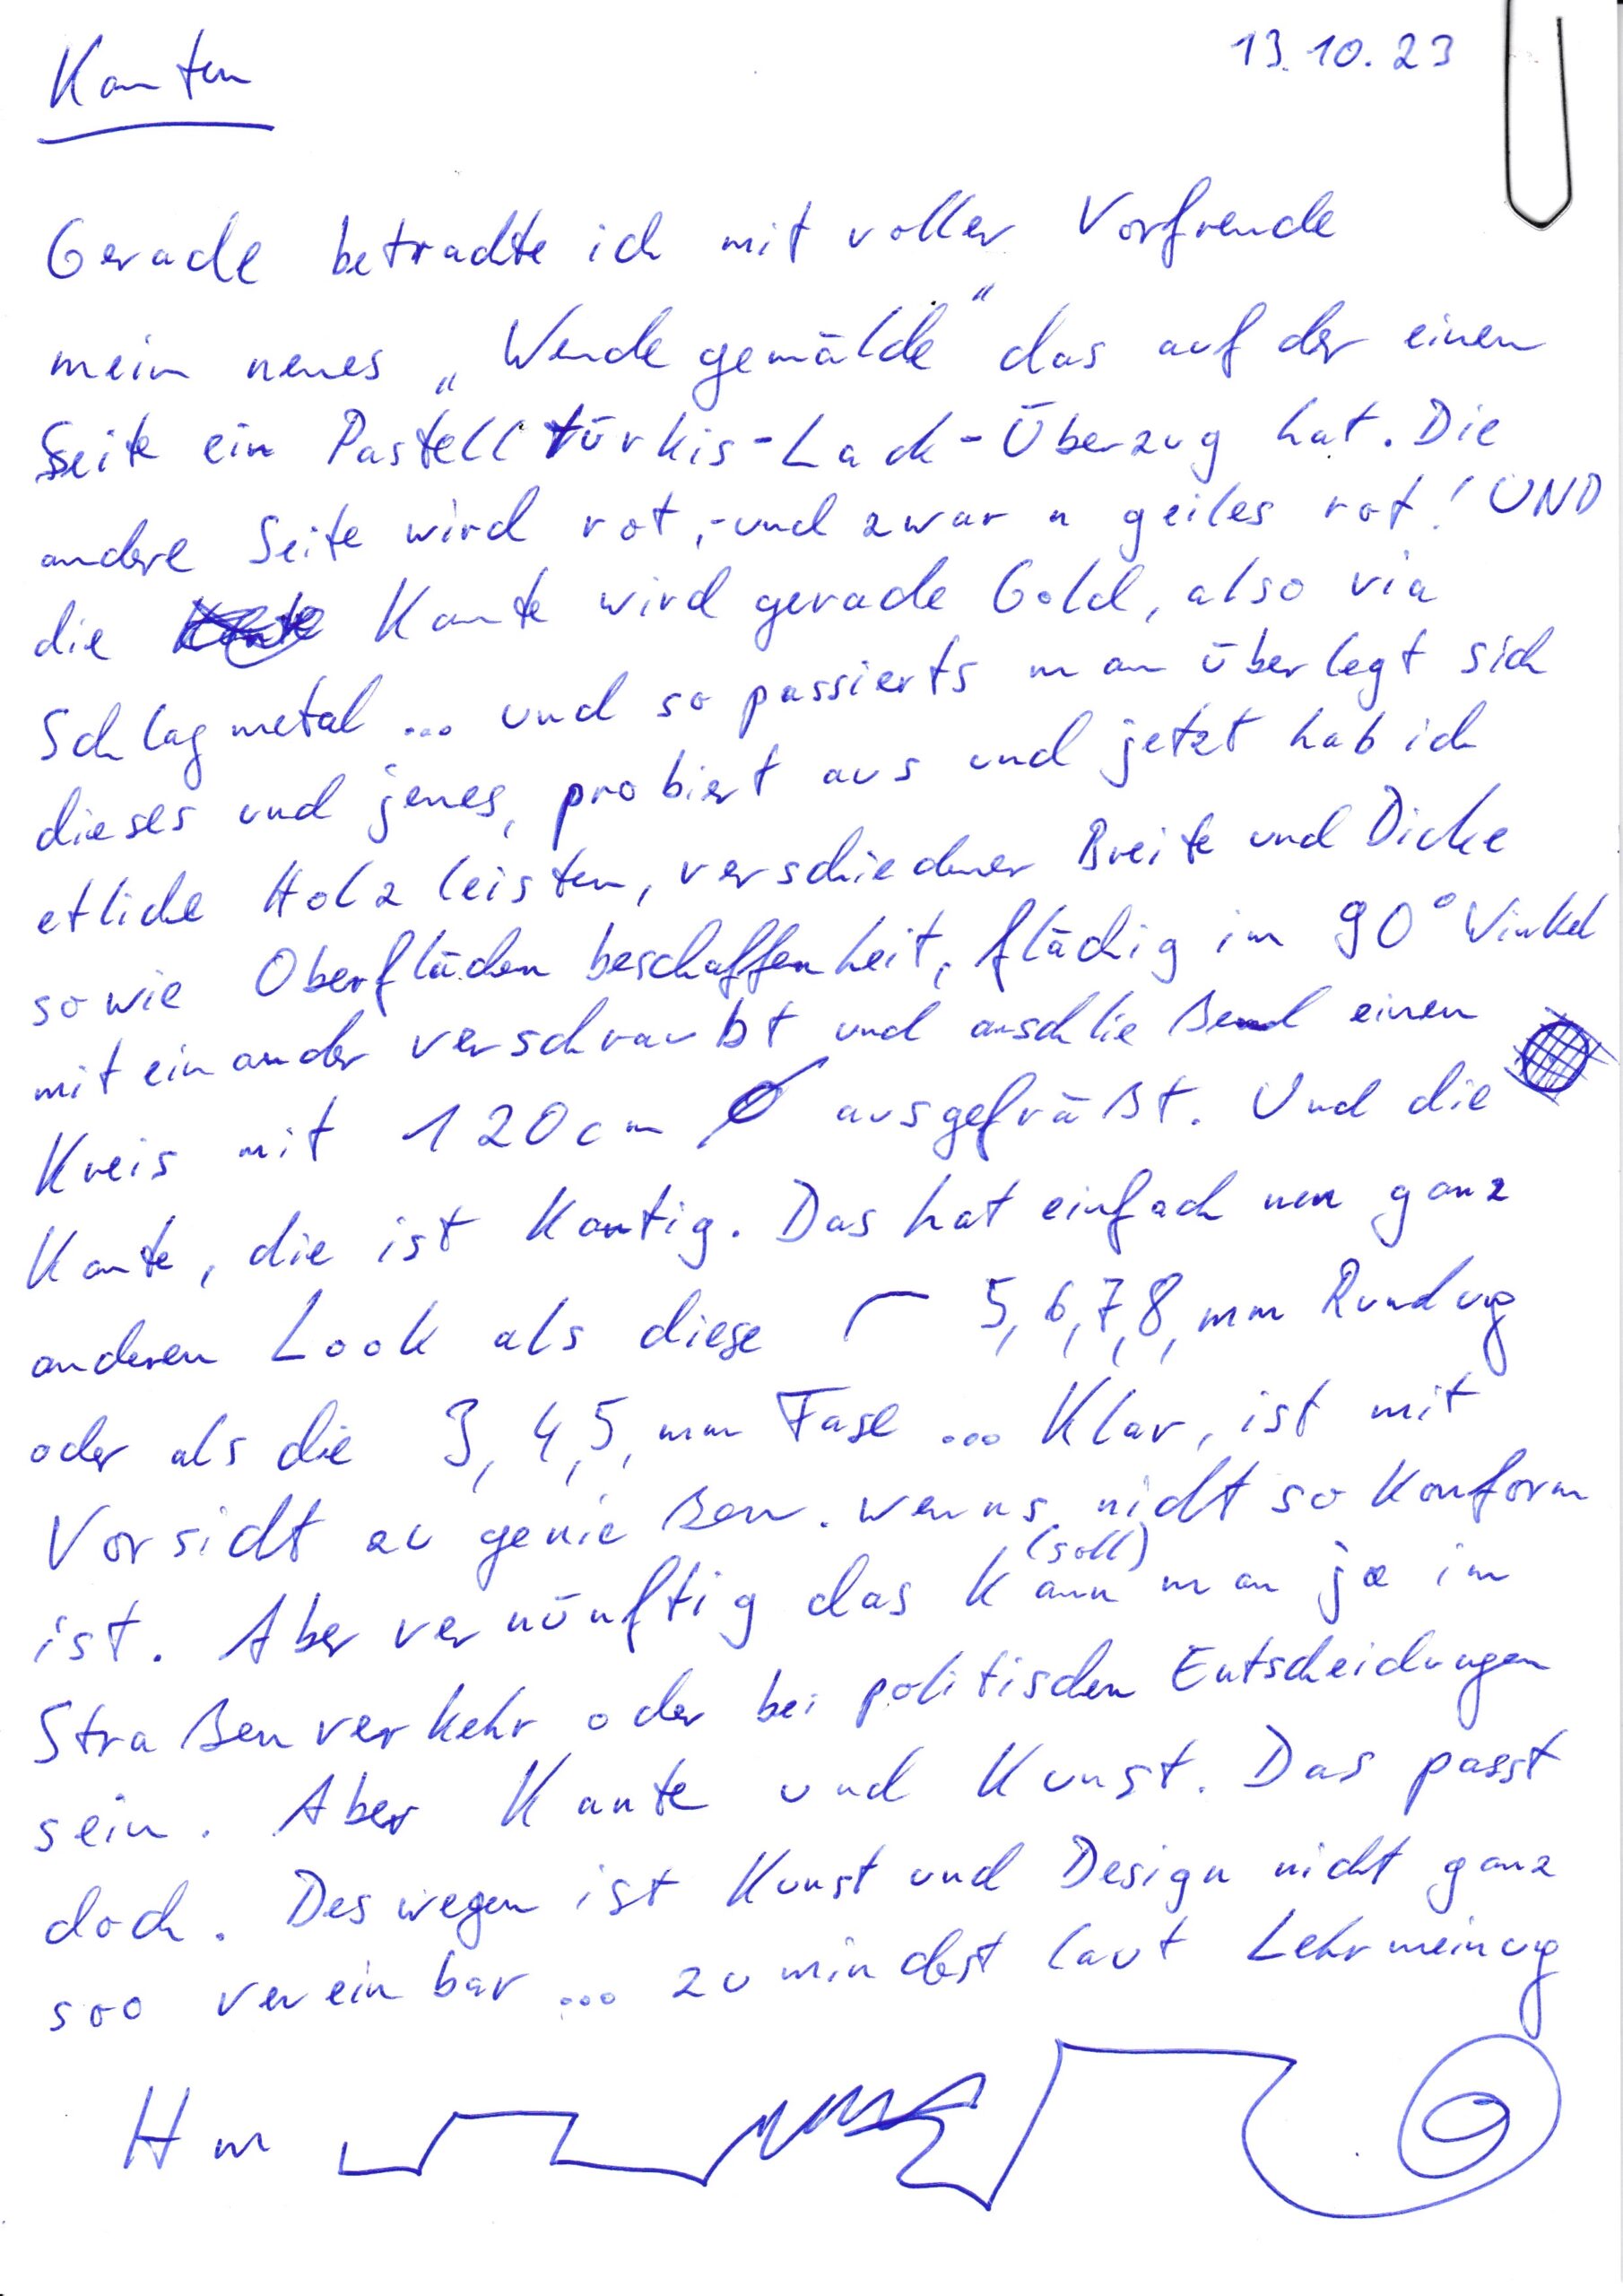 Kanten
13.10.23
Gerade betrachte ich mit voller Vorfreude
mein neues „Wendegemälde" das auf der einen
Seite ein Pastelltürkis-Lack-Überzug hat. Die
andere Seite wird rot,-und zwar n geiles rot! UND
die Kante wird gerade Gold, also via
Schlagmetal ... und so passierts man überlegt sich
dieses und jenes, probiert aus und jetzt hab ich
etliche Holzleisten, verschiedener Breite und Dicke
sowie Oberflächenbeschaffenheit, flächig im 90° Winkel
miteinander verschraubt und anschließend einen
Kreis mit 120cm Ø ausgefräßt. Und die
Kante, die ist Kantig. Das hat einfach nen ganz
anderen Look als diese 5,6,7,8, mm Rundug
oder als die 3,4,5, mm Fase ... Klar, ist mit
Vorsicht zu genießen. wenns nicht so Konform
ist. Aber vernünftig das Kann (soll) man ja im
Straßenverkehr oder bei politischen Entscheidungen
sein. Aber Kante und Kunst. Das passt
doch. Deswegen ist Kunst und Design nicht ganz
soo vereinbar ... zumindest laut Lehrmeinug
Hm